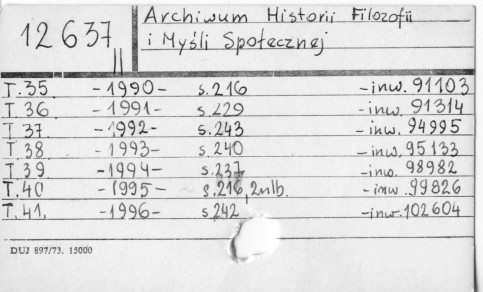 12 637 II
Archiwum Historii Filozofii
i Myśli Społecznej
T.35. -1990- s.216 -inw. 91103
T. 36 -1991- s.229 -inw. 91314
T. 37 -1992- s.243 -inw. 94995
T. 38 -1993- s.240 -inw. 95133
T. 39 -1994- s.237 -inw. 98982
T. 40 -1995- s.216, 2nlb. -inw. 99826
T. 41. -1996- s.242 -inw. 102604
DUJ 897/73. 15000